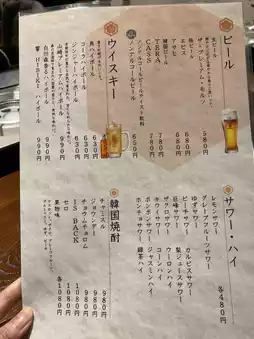 ビール
生ビール
ザ・プレミアム・モルツ 580円
瓶ビール
エビス 680円
アサヒ 650円
韓国ビール
TERRA 780円
CASS 780円
ノンアルコールビール
650円
ウイスキー
角ハイボール 630円
コーラハイボール 630円
ジンジャーハイボール 630円
山崎プレミアムハイボール 990円
白州森香るハイボール 990円
響 HIBIKI ハイボール 990円
サワー・ハイ
各480円
レモンサワー
グレープフルーツサワー
ゆずサワー
ピーチサワー
巨峰サワー
ザクロサワー
ボンボンサワー
ホンチョサワー
カルピスサワー
梨ジュースサワー
ウーロンハイ
コーンハイ
ジャスミンハイ
緑茶ハイ
韓国焼酎
チャミスル 980円
ジョウンデー 980円
チョウムチョロム 980円
IS BACK 1080円
セロ 1080円
果物味 各1080円